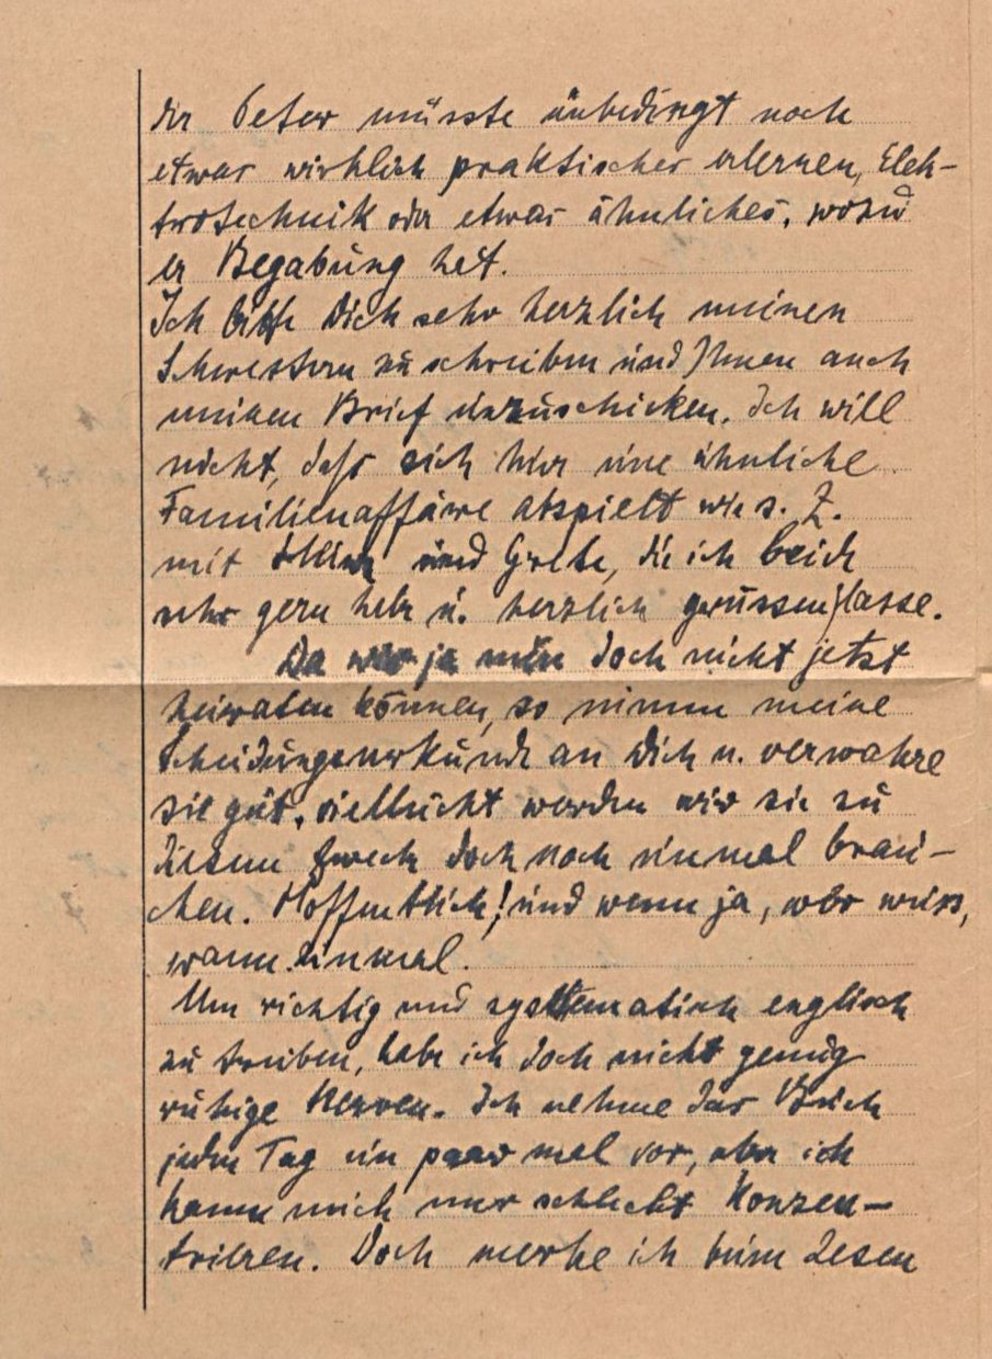 der Peter müsste unbedingt noch
etwas wirklich praktisches erlernen, Elek-
trotechnik oder etwas ähnliches, wozu
er Begabung hat.
Ich bitte Dich sehr herzlich meinen
Schwestern zu schreiben und Ihnen auch
meinen Brief einzuschicken. Ich will
nicht, dass sich hier eine ähnliche
Familienaffäre abspielt wie s. Z.
mit und Grete, die ich beide
sehr gern habe u. herzlich grüssen lasse.
Da wir ja nun doch nicht jetzt
heiraten können, so nimm meine
Scheidungsurkunde an Dich u. verwahre
sie gut, vielleicht werden wir sie zu
diesem Zweck doch noch einmal brau-
chen. Hoffentlich! und wenn ja, wer weiss,
wann einmal.
Um richtig und systematisch englisch
zu treiben, habe ich doch nicht genug
ruhige Nerven. Ich nehme das Buch
jeden Tag ein paar mal vor, aber ich
kann mich nur schlecht konzen-
trieren. Doch merke ich beim Lesen